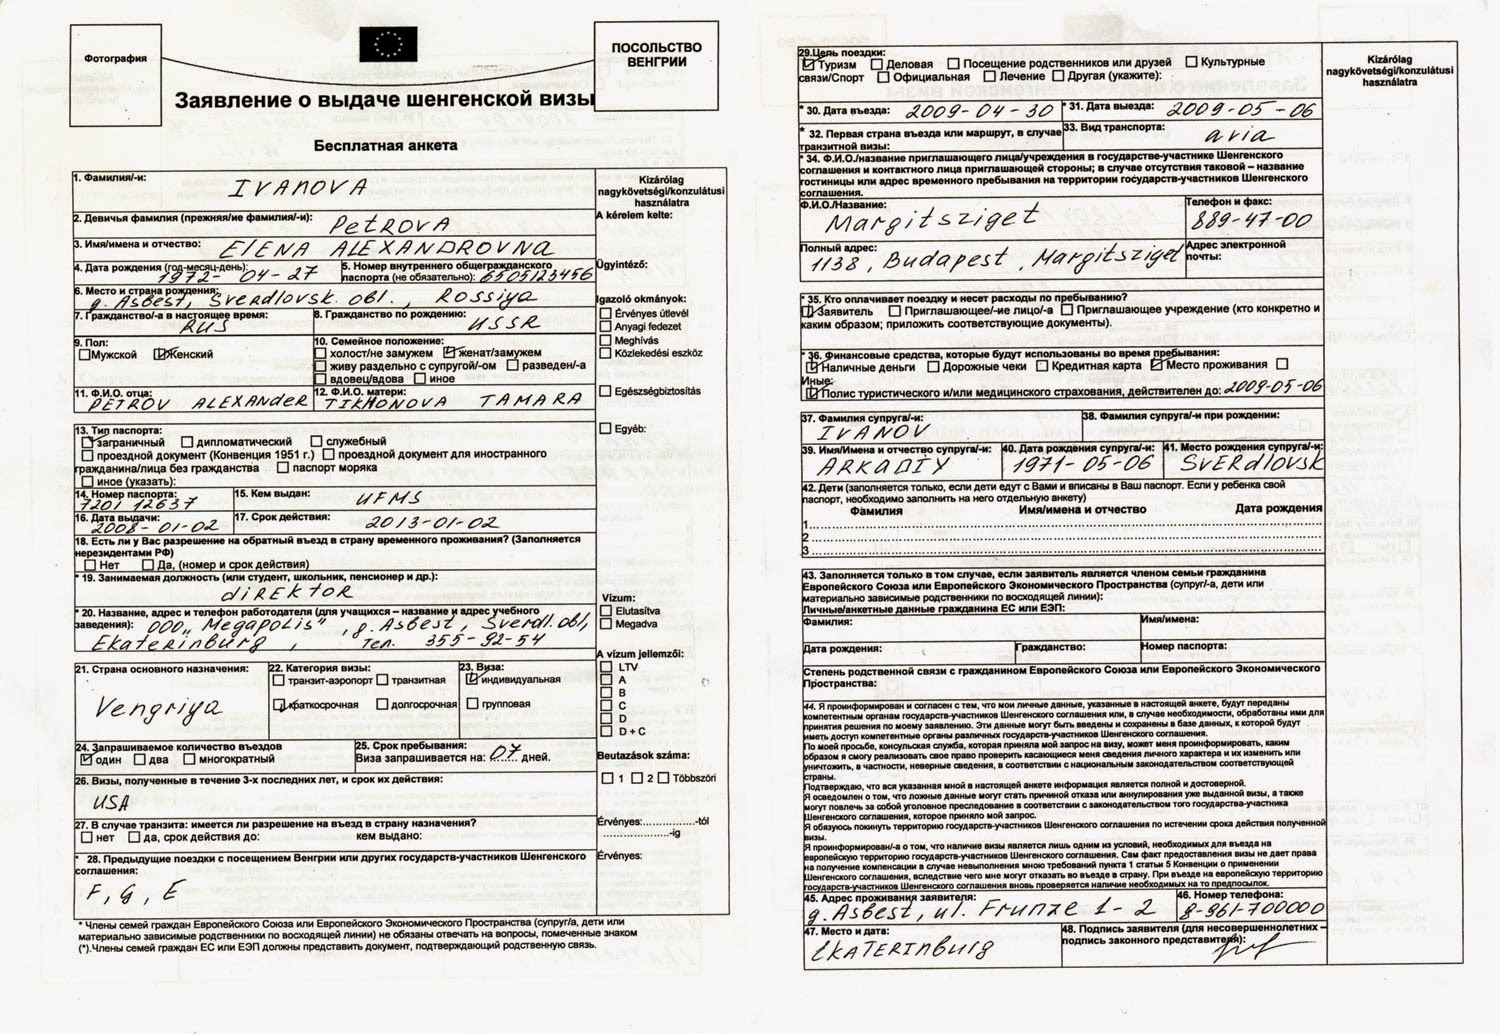 Фотография
ПОСОЛЬСТВО
ВЕНГРИИ
Заявление о выдаче шенгенской визы
Бесплатная анкета
1. Фамилия/-и: IVANOVA
Kizárólag
nagykövetségi/konzulátusi
használatra
2. Девичья фамилия (прежняя/ие фамилия/-и): PETROVA
A kérelem kelte:
3. Имя/имена и отчество: ELENA ALEXANDROVNA
4. Дата рождения (год-месяц-день): 1972-04-27
5. Номер внутреннего общегражданского
паспорта (не обязательно): 6505123456
Ügyintéző:
6. Место и страна рождения:
g. Asbest, Sverdlovsk. obl., Rossiya
Igazoló okmányok:
7. Гражданство/-а в настоящее время: RUS
8. Гражданство по рождению: USSR
Érvényes útlevél
Anyagi fedezet
Meghívás
Közlekedési eszköz
9. Пол:
Мужской Женский
10. Семейное положение:
холост/не замужем женат/замужем
живу раздельно с супругой/-ом разведен/-а
вдовец/вдова иное
Egészségbiztosítás
11. Ф.И.О. отца: PETROV ALEXANDER
12. Ф.И.О. матери: TIKHONOVA TAMARA
Egyéb:
13. Тип паспорта:
заграничный дипломатический служебный
проездной документ (Конвенция 1951 г.) проездной документ для иностранного
гражданина/лица без гражданства паспорт моряка
иное (указать):
14. Номер паспорта: 7201 12637
15. Кем выдан: UFMS
16. Дата выдачи: 2008-01-02
17. Срок действия: 2013-01-02
18. Есть ли у Вас разрешение на обратный въезд в страну временного проживания? (Заполняется
нерезидентами РФ)
Нет Да, (номер и срок действия)
* 19. Занимаемая должность (или студент, школьник, пенсионер и др.):
diREKTOR
Vízum:
Elutasítva
Megadva
* 20. Название, адрес и телефон работодателя (для учащихся – название и адрес учебного
заведения): OOO „Megapolis", g. Asbest, Sverdl. obl,
Ekaterinburg, тел. 355-92-54
A vízum jellemzői:
LTV
A
B
C
D
D + C
21. Страна основного назначения:
Vengriya
22. Категория визы:
транзит-аэропорт транзитная
краткосрочная долгосрочная
23. Виза:
индивидуальная
групповая
24. Запрашиваемое количество въездов
один два многократный
25. Срок пребывания:
Виза запрашивается на: 07 дней.
Beutazások száma:
1 2 Többszöri
26. Визы, полученные в течение 3-х последних лет, и срок их действия:
USA
27. В случае транзита: имеется ли разрешение на въезд в страну назначения?
нет да, срок действия до: кем выдано:
Érvényes:................-tól
....................-ig
* 28. Предыдущие поездки с посещением Венгрии или других государств-участников Шенгенского
соглашения:
F, g, E
Érvényes:
* Члены семей граждан Европейского Союза или Европейского Экономического Пространства (супруг/а, дети или
материально зависимые родственники по восходящей линии) не обязаны отвечать на вопросы, помеченные знаком
(*).Члены семей граждан ЕС или ЕЭП должны представить документ, подтверждающий родственную связь.
29.Цель поездки:
Туризм Деловая Посещение родственников или друзей Культурные
связи/Спорт Официальная Лечение Другая (укажите):
Kizárólag
nagykövetségi/konzulátusi
használatra
* 30. Дата въезда: 2009-04-30
* 31. Дата выезда: 2009-05-06
* 32. Первая страна въезда или маршрут, в случае
транзитной визы:
33. Вид транспорта: avia
* 34. Ф.И.О./название приглашающего лица/учреждения в государстве-участнике Шенгенского
соглашения и контактного лица приглашающей стороны; в случае отсутствия таковой – название
гостиницы или адрес временного пребывания на территории государств-участников Шенгенского
соглашения.
Ф.И.О./Название: Margitsziget
Телефон и факс: 889-47-00
Полный адрес: 1138, Budapest, Margitsziget
Адрес электронной
почты:
* 35. Кто оплачивает поездку и несет расходы по пребыванию?
Заявитель Приглашаещее/-ие лицо/-а Приглашающее учреждение (кто конкретно и
каким образом; приложить соответствующие документы).
* 36. Финансовые средства, которые будут использованы во время пребывания:
Наличные деньги Дорожные чеки Кредитная карта Место проживания
Иные:
Полис туристического и/или медицинского страхования, действителен до: 2009-05-06
37. Фамилия супруга/-и: IVANOV
38. Фамилия супруга/-и при рождении:
39. Имя/Имена и отчество супруга/-и: ARKADIY
40. Дата рождения супруга/-и: 1971-05-06
41. Место рождения супруга/-и: SVERdlOVSK
42. Дети (заполняется только, если дети едут с Вами и вписаны в Ваш паспорт. Если у ребенка свой
паспорт, необходимо заполнить на него отдельную анкету)
Фамилия Имя/имена и отчество Дата рождения
1
2
3
43. Заполняется только в том случае, если заявитель является членом семьи гражданина
Европейского Союза или Европейского Экономического Пространства (супруг/-а, дети или
материально зависимые родственники по восходящей линии):
Личные/анкетные данные гражданина ЕС или ЕЭП:
Фамилия: Имя/имена:
Дата рождения: Гражданство: Номер паспорта:
Степень родственной связи с гражданином Европейского Союза или Европейского Экономического
Пространства:
44. Я проинформирован и согласен с тем, что мои личные данные, указанные в настоящей анкете, будут переданы
компетентным органам государств-участников Шенгенского соглашения или, в случае необходимости, обработаны ими для
принятия решения по моему заявлению. Эти данные могут быть введены и сохранены в базе данных, к которой будут
иметь доступ компетентные органы различных государств-участников Шенгенского соглашения.
По моей просьбе, консульская служба, которая приняла мой запрос на визу, может меня проинформировать, каким
образом я смогу реализовать свое право проверить касающиеся меня сведения личного характера и их изменить или
уничтожить, в частности, неверные сведения, в соответствии с национальным законодательством соответствующей
страны.
Подтверждаю, что вся указанная мной в настоящей анкете информация является полной и достоверной.
Я осведомлен о том, что ложные данные могут стать причиной отказа или аннулирования уже выданной визы, а также
могут повлечь за собой уголовное преследование в соответствии с законодательством того государства-участника
Шенгенского соглашения, которое приняло мой запрос.
Я обязуюсь покинуть территорию государств-участников Шенгенского соглашения по истечении срока действия полученной
визы.
Я проинформирован/-а о том, что наличие визы является лишь одним из условий, необходимых для въезда на
европейскую территорию государств-участников Шенгенского соглашения. Сам факт предоставления визы не дает права
на получение компенсации в случае невыполнения мною требований пункта 1 статьи 5 Конвенции о применении
Шенгенского соглашения, вследствие чего мне могут отказать во въезде в страну. При въезде на европейскую территорию
государств-участников Шенгенского соглашения вновь проверяется наличие необходимых на то предпосылок.
45. Адрес проживания заявителя:
g. Asbest, ul. Frunze 1-2
46. Номер телефона:
8-961-700000
47. Место и дата:
EKATERINBURG
48. Подпись заявителя (для несовершеннолетних –
подпись законного представителя):